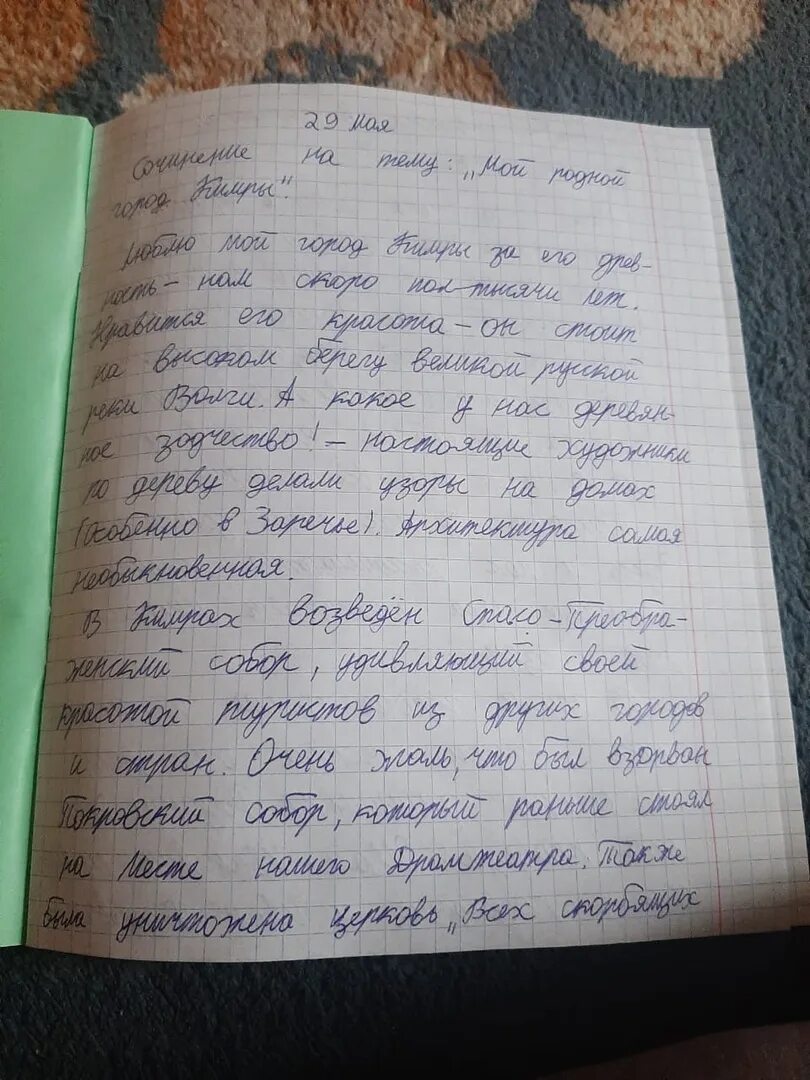 29 мая
Сочинение на тему: „Мой родной
город Кимры".
Люблю мой город Кимры за его древ-
ность - нам скоро пол-тысячи лет.
Нравится его красота - он стоит
на высоком берегу великой русской
реки Волги. А какое у нас деревян-
ное зодчество! - настоящие художники
по дереву делали узоры на домах
(особенно в Заречье). Архитектура самая
необыкновенная.
В Кимрах возведён Спасо-Преобра-
женский собор, удивляющий своей
красотой туристов из других городов
и стран. Очень жаль, что был взорван
Покровский собор, который раньше стоял
на месте нашего Драмтеатра. Также
была уничтожена церковь „Всех скорбящих